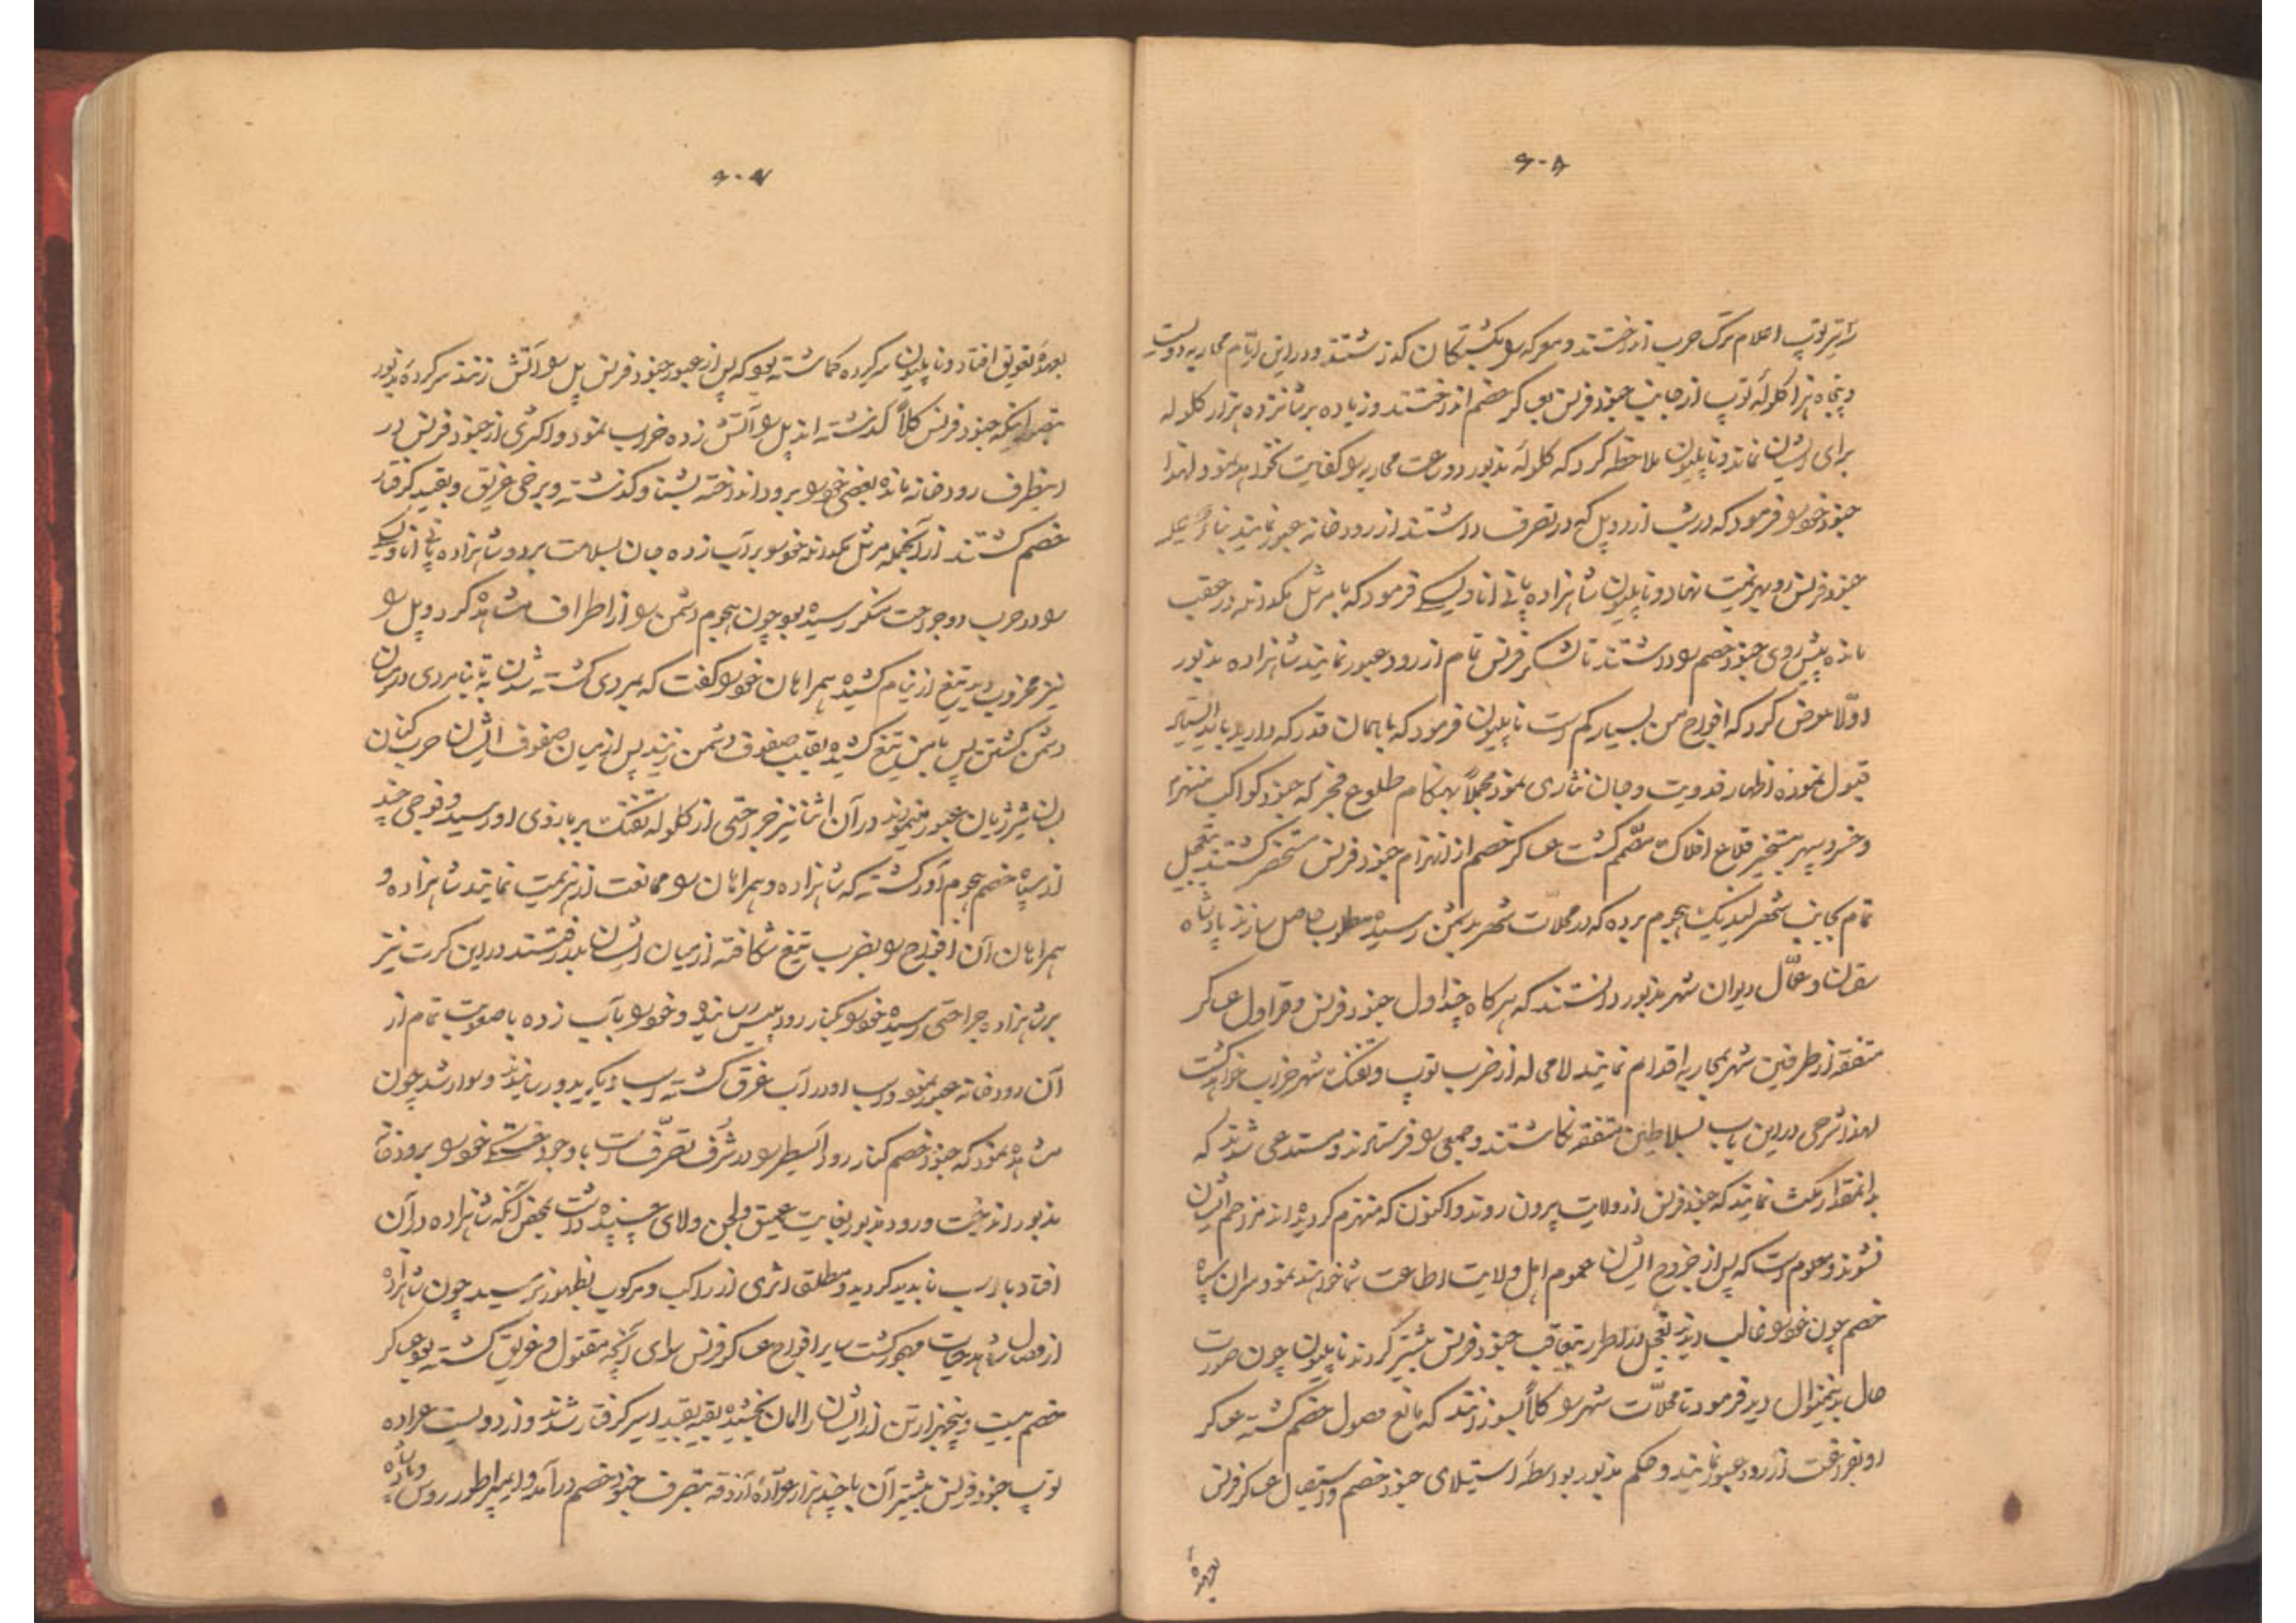 ۶۰۵
اعلام ترک حرب انداختند و معرکه را بکشتکان گذاشتند و در این ایّام محاربه دویست
و پنجاه هزار گلولهٔ توپ از جانب جنود فرنس بعساکر خصم انداختند و زیاده بر شانزده هزار گلوله
برای ایشان نماند و ناپلیون ملاحظه کرد که گلولهٔ مذبور دو ساعت محاربه را کفایت نخواهد نمود لهذا
جنود خود را فرمود که در شب از دو پل که در تصرف داشتند از رودخانه عبور نمایند بناءً علیه
جنود فرنس رو بهزیمت نهاد و ناپلیون شاهزاده پانی اتاوسکی فرمود که با مرشل مکدانلد در عقب
مانده پیش روی جنود خصم را داشتند تا لشکر فرنس تمام از رود عبور نمایند شاهزاده مذبور
اوّلا معروض کرد که افواج من بسیار کم است ناپلیون فرمود که با همان قدر که دارید باید ایستاد
قبول نموده اظهار فدویت و جان نثاری نمود مجملاً بهنگام طلوع فجر که جنود کواکب منهزم
و خسرو سپهر بتسخیر قلاع افلاک مصمّم گشت عساکر خصم از انهزام جنود فرنس مستحضر گشتند بتعجیل
تمام بجانب شهر لیپزیک هجوم برده که در محلات شهر بدشمن رسیده مطلوب حاصل سازند پادشاه
سقسان و عمّال دیوان شهر مذبور دانستند که هرگاه چنداول جنود فرنس و قراول عساکر
متفقه از طرفین شهر بمحاربه اقدام نمایند لامحاله از ضرب توپ و تفنگ شهر خراب خواهد گشت
لهذا شرحی در این باب بسلاطین متفقه نگاشتند و جمعی را فرستادند و مستدعی شدند که
بدانمقدار مکث نمایند که جنود فرنس از ولایت بیرون روند و اکنون که منهزم گردیده‌اند مزاحم ایشان
نشوند و معلوم است که پس از خروج ایشان عموم اهل ولایت اطاعت شما خواهند نمود سران سپاه
خصم چون خود را غالب دیدند بتعجیل در اطراف بتعاقب جنود فرنس بیشتر کردند ناپلیون چون صورت
حال بدینمنوال دید فرمود تا محلّات شهر را کلاً بسوزانند که مانع وصول خصم گشته عساکر
او بفراغت از رود عبور نمایند و حکم مذبور بواسطهٔ استیلای جنود خصم و استیصال عساکر فرنس
بعهدهٔ
۶۰۶
بعهدهٔ تعویق افتاد و ناپلیون سرکرده گماشته بود که پس از عبور جنود فرنس پل را آتش زنند سرکردهٔ مذبور
بتصور اینکه جنود فرنس کلاً گذشته‌اند پل را آتش زده خراب نمود و اکثری از جنود فرنس در
اینطرف رودخانه مانده بعضی خود را برود انداخته بشنا گذشته و برخی غریق و بقیه گرفتار
خصم گشتند از آنجمله مرشل مکدانلد خود را بر آب زده جان بسلامت برد و شاهزاده پانی اتاوسکی
را در حرب دو جراحت منکر رسیده بود چون هجوم دشمن را از اطراف مشاهده کرد و پل را
نیز مخروب دید تیغ از نیام کشیده همراهان خود را گفت که بمردی کشته شدن به تا بنامردی در میان
دشمن گشتن پس با من تیغ کشیده بقلب صفوف دشمن زنید پس از میان صفوف ایشان حرب کنان
بسان شیر ژیان عبور مینمودند در آن اثنا نیز جراحتی از گلوله تفنگ بر بازوی او رسید و فوجی چند
از سپاه خصم هجوم آور گشته که شاهزاده و همراهان را ممانعت از هزیمت نمایند شاهزاده و
همراهان آن افواج را بضرب تیغ شکافته از میان ایشان بدر رفتند در این کرت نیز
بر شاهزاده جراحتی رسیده خود را بکنار رود پلیس رسانیده و خود را بآب زده با صعوبت تمام از
آن رودخانه عبور نمود و اسب او در آب غرق گشته اسب دیگر بدو رسانیدند و سوار شد چون
مشاهده نمود که جنود خصم کنار رود السطر را در شرف تصرّف است با وجود خستگی خود را برودخانه
مذبور انداخت و رود مذبور بغایت عمیق و لجن و لای چسپیده داشت بمحض آنکه شاهزاده در آن
افتاد با اسب ناپدید گردید و مطلق اثری از راکب و مرکوب بظهور نرسید چون شاهزاده
از وصال شاهد حیات مهجور گشت سایر افواج عساکر فرنس سوای آنچه مقتول و غریق گشته بود عساکر
خصم بیست و پنجهزار تن از ایشان را امان بخشیده بقیه بقید اسیر گرفتار شدند و از دویست عراده
توپ جنود فرنس بیشتر آن با چند هزار عرّادهٔ آزوقه بتصرف جنود خصم درآمد و ایمپراطور روس و پادشاه